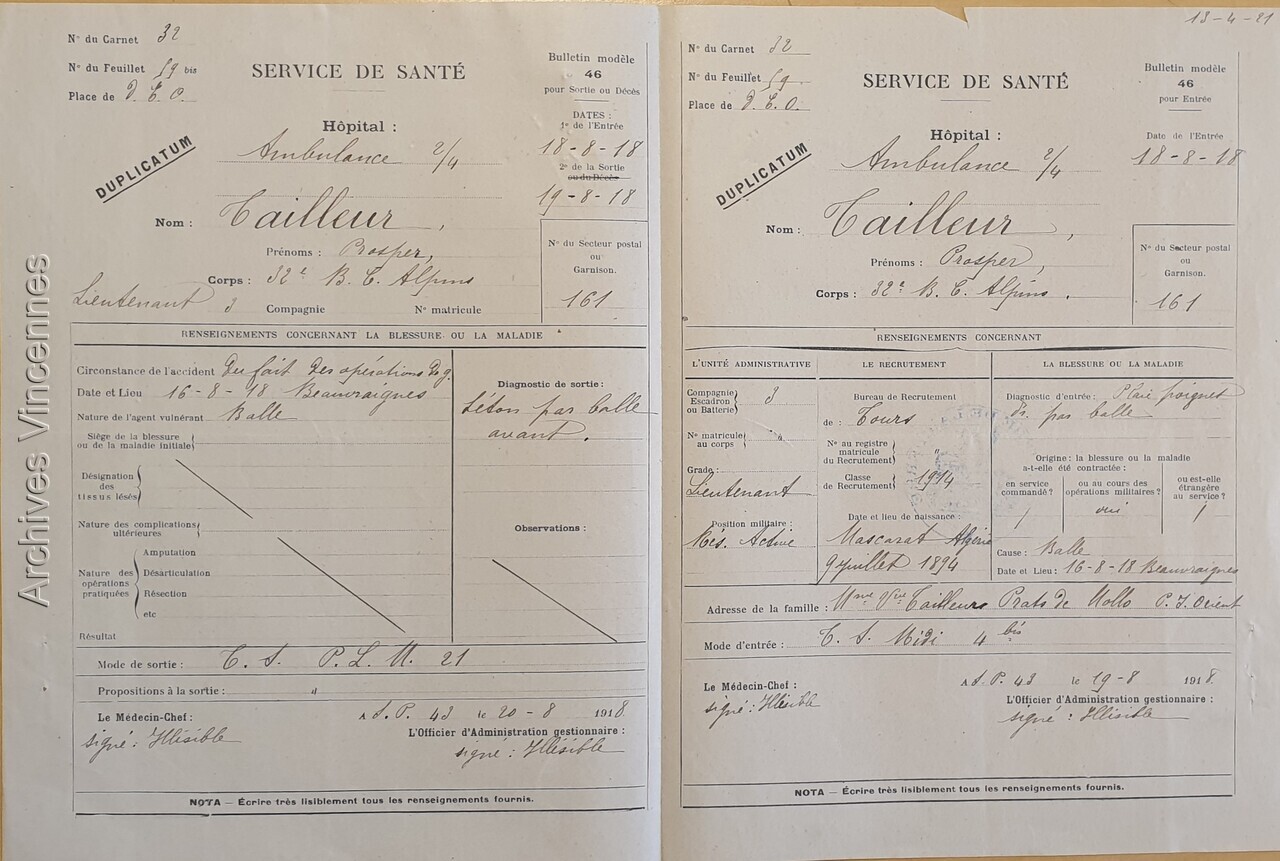 Archives Vincennes
N° du Carnet 32
N° du Feuillet 59 bis
Place de D.E.O.
SERVICE DE SANTÉ
Bulletin modèle
46
pour Sortie ou Décès
DUPLICATUM
Hôpital :
Ambulance 2/4
DATES :
1° de l'Entrée
18-8-18
2° de la Sortie
ou du Décès
19-8-18
Nom : Tailleur,
Prénoms : Prosper,
Corps : 32e B. C. Alpins
Lieutenant 3 Compagnie N° matricule
N° du Secteur postal
ou
Garnison.
161
RENSEIGNEMENTS CONCERNANT LA BLESSURE OU LA MALADIE
Circonstance de l'accident Du fait des opérations de g.
Date et Lieu 16-8-18 Beauvraignes
Nature de l'agent vulnérant Balle
Siège de la blessure
ou de la maladie initiale
Désignation
des
tissus lésés
Nature des complications
ultérieures
Nature des
opérations
pratiquées
Amputation
Désarticulation
Résection
etc
Résultat
Diagnostic de sortie :
Séton par balle
avant.
Observations :
Mode de sortie : T. S. P. L. M. 21
Propositions à la sortie : "
Le Médecin-Chef :
signé : Illisible
A S. P. 43 le 20-8 1918
L'Officier d'Administration gestionnaire :
signé : Illisible
NOTA — Écrire très lisiblement tous les renseignements fournis.
13-4-21
N° du Carnet 32
N° du Feuillet 59
Place de D.E.O.
SERVICE DE SANTÉ
Bulletin modèle
46
pour Entrée
DUPLICATUM
Hôpital :
Ambulance 2/4
Date de l'Entrée
18-8-18
Nom : Tailleur,
Prénoms : Prosper,
Corps : 32e B. C. Alpins.
N° du Secteur postal
ou
Garnison.
161
RENSEIGNEMENTS CONCERNANT
L'UNITÉ ADMINISTRATIVE
Compagnie
Escadron
ou Batterie
3
N° matricule
au corps
"
Grade :
Lieutenant
Position militaire :
Rés. Active
LE RECRUTEMENT
Bureau de Recrutement
de : Tours
N° au registre
matricule
du Recrutement
"
Classe
de Recrutement
1914
Date et lieu de naissance :
Mascarat Algérie
9 juillet 1894
LA BLESSURE OU LA MALADIE
Diagnostic d'entrée : Plaie poignet
Dr. par balle
Origine : la blessure ou la maladie
a-t-elle été contractée :
en service
commandé ?
/
ou au cours des
opérations militaires ?
oui
ou est-elle
étrangère
au service ?
/
Cause : Balle
Date et Lieu : 16-8-18 Beauvraignes
Adresse de la famille : Mme Vve Tailleurs Prats de Mollo P. I. Orient
Mode d'entrée : T. S. Midi 4 bis
Le Médecin-Chef :
signé : Illisible
A S. P. 43 le 19-8 1918.
L'Officier d'Administration gestionnaire :
signé : Illisible
NOTA — Écrire très lisiblement tous les renseignements fournis.